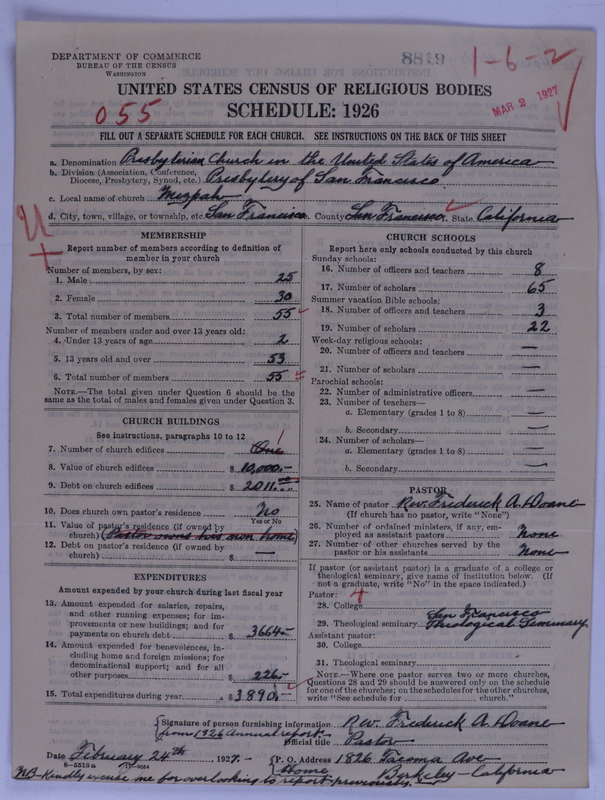 DEPARTMENT OF COMMERCE
BUREAU OF THE CENSUS
WASHINGTON
8819
1-6-2
UNITED STATES CENSUS OF RELIGIOUS BODIES
MAR 2 1927
055
SCHEDULE: 1926
FILL OUT A SEPARATE SCHEDULE FOR EACH CHURCH. SEE INSTRUCTIONS ON THE BACK OF THIS SHEET
a. Denomination Presbyterian Church in the United States of America
b. Division (Association, Conference, Diocese, Presbytery, Synod, etc.) Presbytery of San Francisco.
c. Local name of church Mispah
d. City, town, village, or township, etc. San Francisco. County San Francisco. State California
U
MEMBERSHIP
Report number of members according to definition of
member in your church
Number of members, by sex:
1. Male 25
2. Female 30
3. Total number of members 55
Number of members under and over 13 years old:
4. Under 13 years of age 2
5. 13 years old and over 53
6. Total number of members 55
NOTE.—The total given under Question 6 should be
same as the total of males and females given under Question 3.
CHURCH BUILDINGS
See instructions, paragraphs 10 to 12
7. Number of church edifices One 1
8. Value of church edifices $ 10,000.-
9. Debt on church edifices $ 2011.00
10. Does church own pastor's residence No
Yes or No
11. Value of pastor's residence (if owned by
church) (Pastor owns his own home)
12. Debt on pastor's residence (if owned by
church) $ —
EXPENDITURES
Amount expended by your church during last fiscal year
13. Amount expended for salaries, repairs,
and other running expenses; for im-
provements or new buildings; and for
payments on church debt $ 3664-
14. Amount expended for benevolences, in-
cluding home and foreign missions; for
denominational support; and for all
other purposes $ 226-
15. Total expenditures during year $ 3890.-
CHURCH SCHOOLS
Report here only schools conducted by this church
Sunday schools:
16. Number of officers and teachers 8
17. Number of scholars 65
Summer vacation Bible schools:
18. Number of officers and teachers 3
19. Number of scholars 22
Week-day religious schools:
20. Number of officers and teachers —
21. Number of scholars —
Parochial schools:
22. Number of administrative officers —
23. Number of teachers—
a. Elementary (grades 1 to 8) —
b. Secondary —
24. Number of scholars—
a. Elementary (grades 1 to 8) —
b. Secondary —
PASTOR
25. Name of pastor Rev. Frederick A. Doane
(If church has no pastor, write "None")
26. Number of ordained ministers, if any, em-
ployed as assistant pastors None
27. Number of other churches served by the
pastor or his assistants None
If pastor (or assistant pastor) is a graduate of a college or
theological seminary, give name of institution below. (If
not a graduate, write "No" in the space indicated.)
Pastor:
28. College
29. Theological seminary San Francisco Theological Seminary.
Assistant pastor:
30. College
31. Theological seminary
NOTE.—Where one pastor serves two or more churches,
Questions 28 and 29 should be answered only on the schedule
for one of the churches; on the schedules for the other churches,
write "See schedule for church."
Signature of person furnishing information Rev. Frederick A. Doane
from 1926 annual report. Official title Pastor
Date February 24th, 1927.- P. O. Address 1826 Tacoma Ave
8-5518a
Home Berkeley - California
NB - Kindly excuse me for overlooking to report previously.